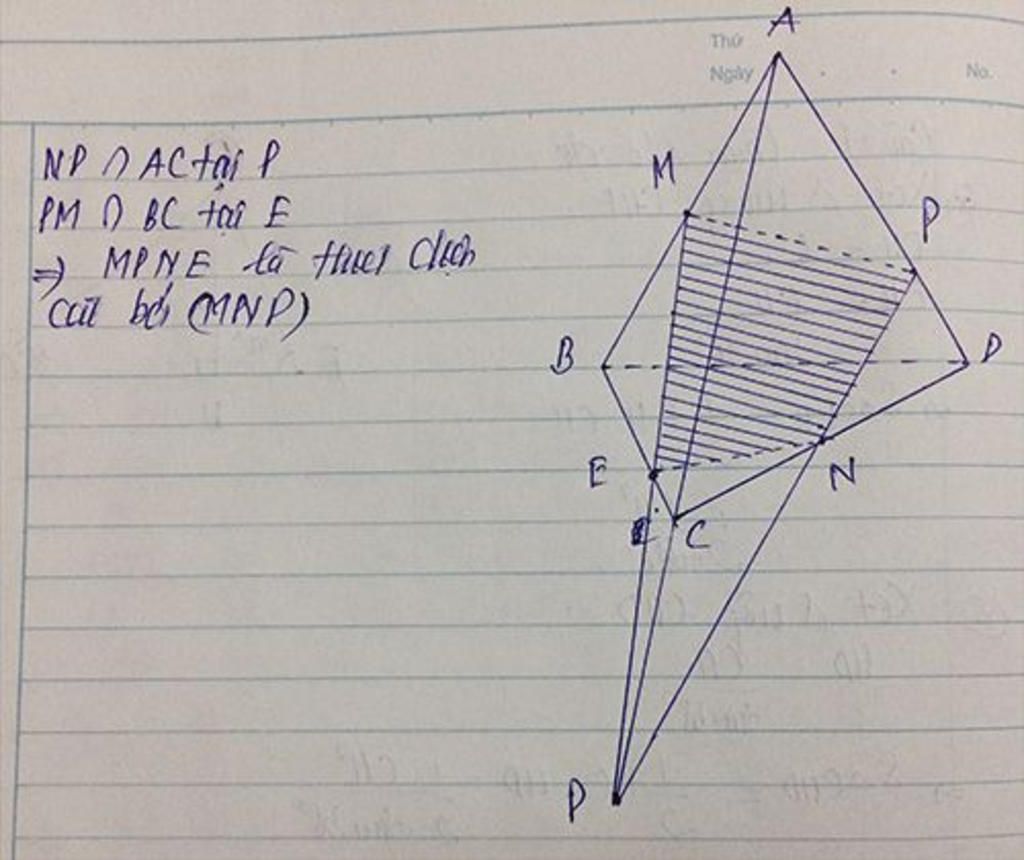 Thứ
Ngày
No.
NP ∩ AC tại P
PM ∩ BC tại E
⇒ MPNE là thiết diện
cắt bởi (MNP)
A
M
P
B
D
E
N
C
P